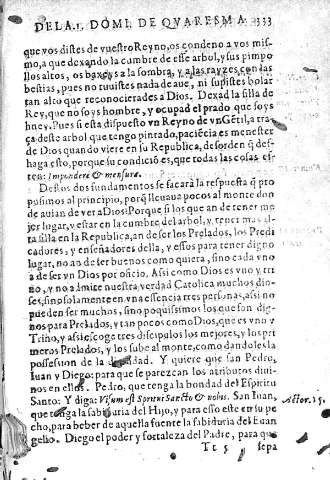 DE LA .I. DOMI. DE QVARESMA 333
que vos distes de vuestro Reyno, os condeno a vos mis-
mo, a que dexando la cumbre de esse arbol, y sus pimpo
llos altos, os baxeys a la sombra, y a las rayzes con las
bestias, pues no tuuistes nada de aue, ni supistes bolar
tan alto que reconocierades a Dios. Dexad la silla de
Rey, que no soys hombre, y ocupad el prado que soys
Pues si esta dispuesto vn Reyno de vn Gētil, tra
ças deste arbol que tengo pintado, paciēcia es menester
de Dios quando viere en su Republica, desorden q̄ des-
haga esto, porque su condició es, que todas las cosas es
ten: Impondere & mensura.
Destos dos fundamentos se sacará la respuesta q̄ pro
pusimos al principio, porq̄ lleuaua pocos al monte don
de auian de ver a Dios: Porque si los que an de tener me
jor lugar, y estar en la cumbre del arbol, y tener mas al-
ta silla en la Republica, an de ser los Prelados, los Predi
cadores, y enseñadores della, y essos para tener digno
lugar, no an de ser buenos como quiera, sino cada vno
a de ser vn Dios por oficio. Assi como Dios es vno y tri
no, y no admite nuestra verdad Catolica muchos dio-
ses, sino solamente en vna essencia tres personas, assi no
pueden ser muchos, sino poquissimos los que son dig-
nos para Prelados, y tan pocos como Dios, que es vno y
Trino, y assi escoge tres discipulos los mejores, y los pri
meros Prelados, y los sube al monte, como dandoles la
possession de la Y quiere que san Pedro,
Iuan y Diego: para que se parezcan los atributos diui-
nos en ellos. Pedro, que tenga la bondad del Espiritu
Santo: Y diga: Visum est Spiritui Sancto & nobis. San Iuan,
que tenga la sabiduria del Hijo, y para esso este en su pe
cho, para beber de aquella fuente la sabiduria del Euan
gelio. Diego el poder y fortaleza del Padre, para que
Actor. 15.
Tt 5 sepa